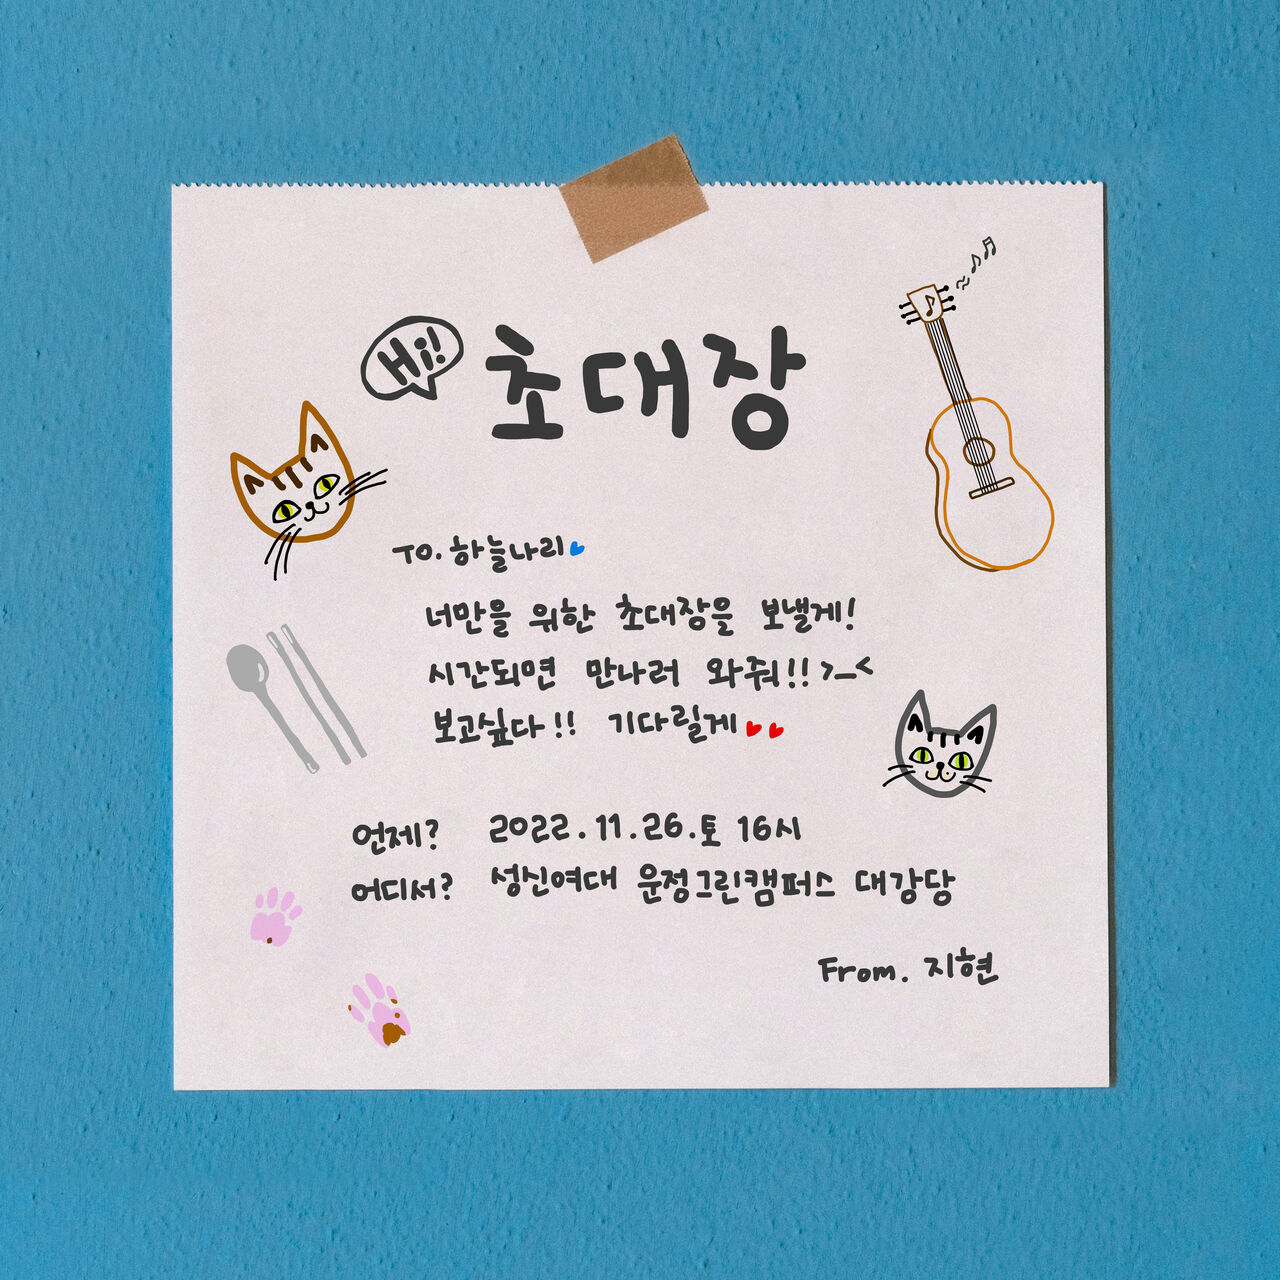 Hi! 초대장
TO. 하늘나리
너만을 위한 초대장을 보낼게!
시간되면 만나러 와줘!! >_<
보고싶다!! 기다릴게
언제? 2022.11.26.토 16시
어디서? 성신여대 운정그린캠퍼스 대강당
From. 지현